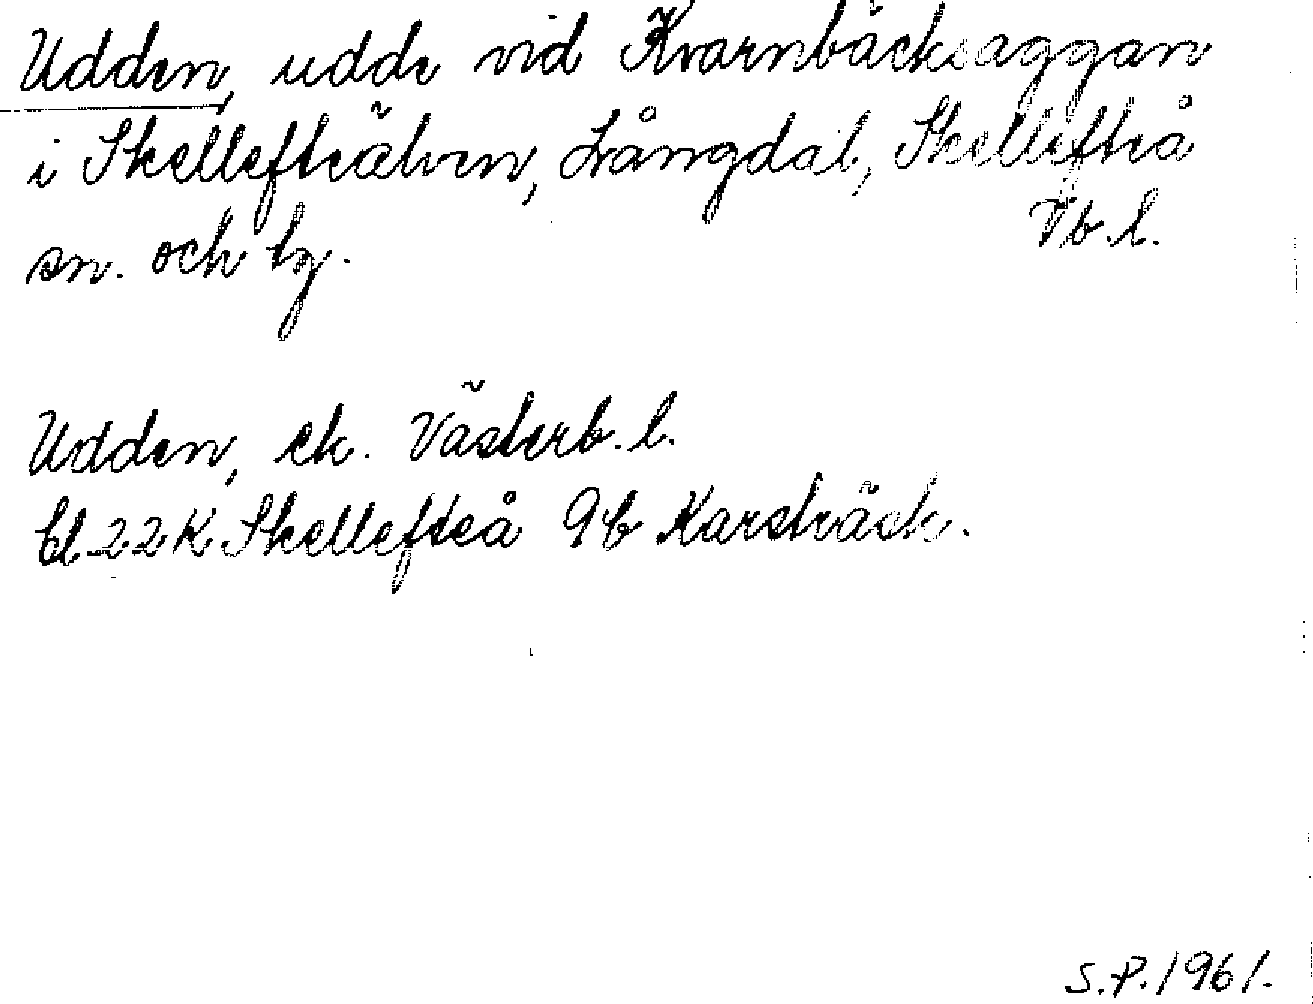 Udden, udde vid Kvarnbäcksaggan
i Skellefteälven, Långdal, Skellefteå
sn. och lg.
Vb. l.
Udden, ek. Västerb. l.
bl. 22K Skellefteå 9b Karsträsk.
S.P. 1961.